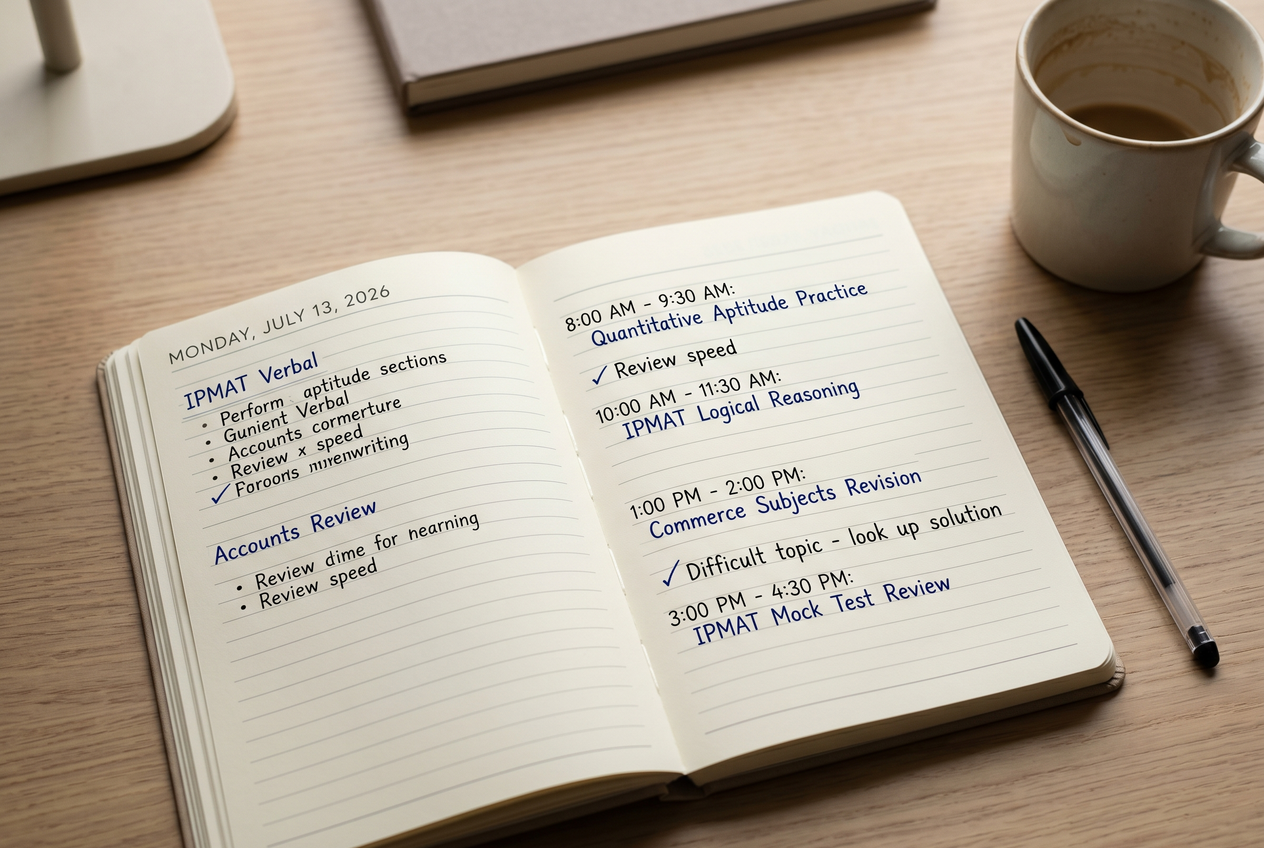 MONDAY, JULY 13, 2026
IPMAT Verbal
• Perform aptitude sections
• Gunient Verbal
• Accounts cormerture
• Review x speed
✓ Foroons mırenwriting
Accounts Review
• Review dime for hearning
• Review speed
8:00 AM - 9:30 AM:
Quantitative Aptitude Practice
✓ Review speed
10:00 AM - 11:30 AM:
IPMAT Logical Reasoning
1:00 PM - 2:00 PM:
Commerce Subjects Revision
✓ Difficult topic - look up solution
3:00 PM - 4:30 PM:
IPMAT Mock Test Review